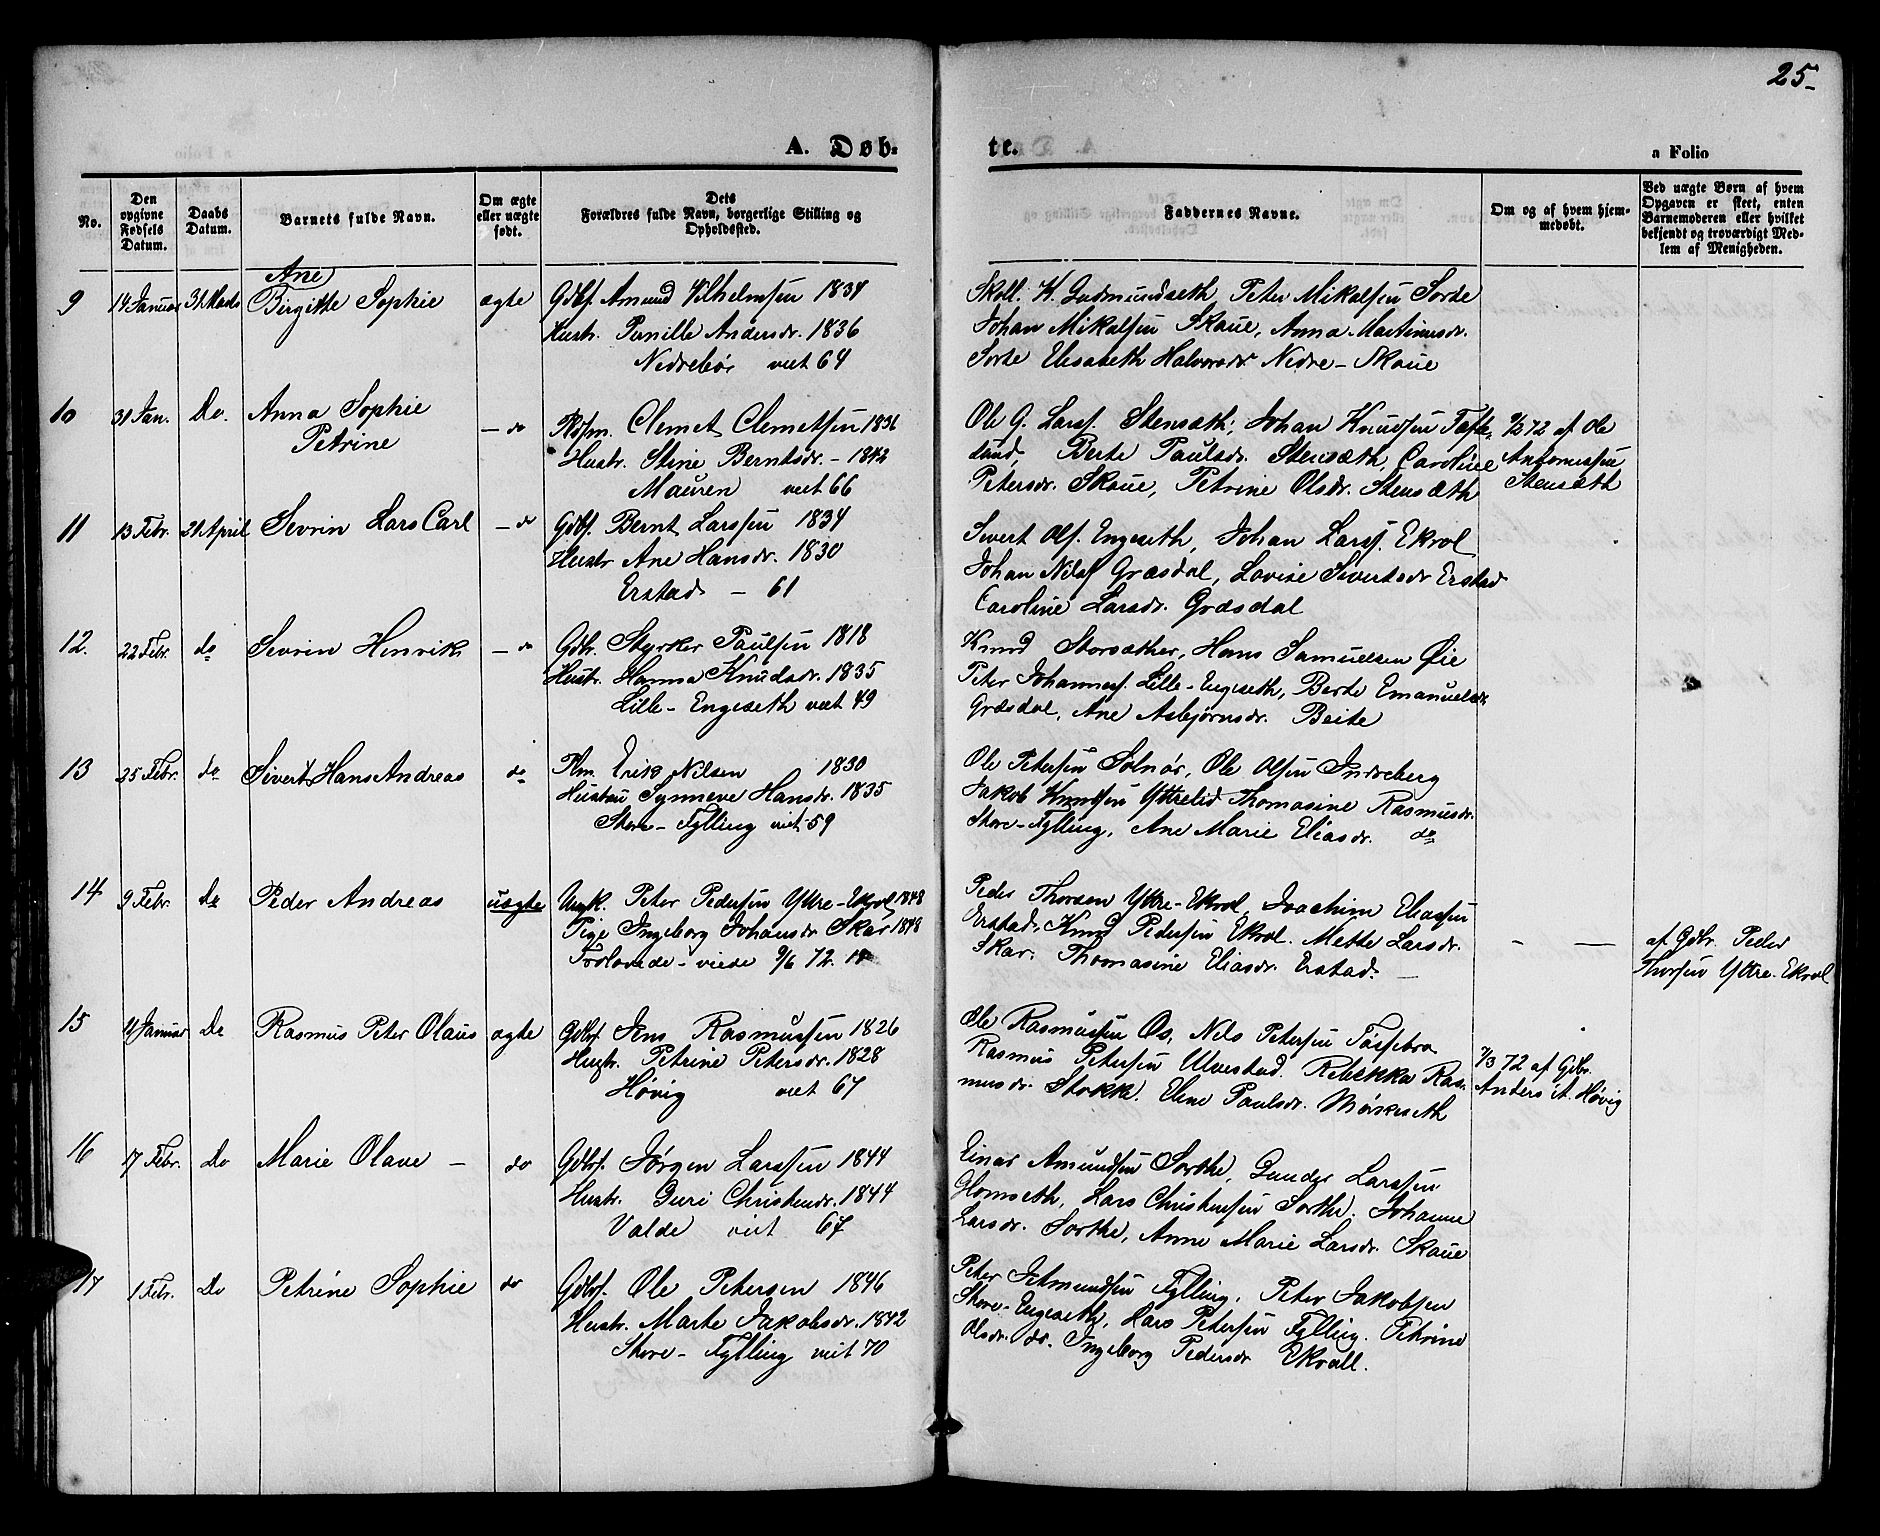 25
A. Døb-
te.
a Folio
No.
Den opgivne Fødsels Datum.
Daabs Datum.
Barnets fulde Navn.
Om ægte eller uægte født.
Dets Forældres fulde Navn, borgerlige Stilling og Opholdssted.
Faddernes Navne.
Om og af hvem hjemmedøbt.
Ved uægte Børn af hvem Opgaven er skeet, enten Barnemoderen eller hvilket bekjendt og troværdigt Medlem af Menigheden.
Ane
9 14 Januar 31 Marts Birgitte Sophie ægte Gdbf. Amund Vilhelmsen 1834
Hustr. Pernille Andersdr. 1836
Nedrebø viet 64
Skoll. K. Gudmundsæth, Peter Mikalsen Sorte
Johan Mikalsen Skoue, Anna Martinusdr.
Sorte Elisabeth Halvorsdr Nedre-Skoue
10 31 Jan. Do. Anna Sophie — do Clemet Clemetsen 1836
Petrine Hustr. Stine Berntsdr. - 1842
Mauren viet 66
Ole G. Larss. Stensæth, Johan Knudsen
Berte Paulsdr. Stensæth, Caroline
Petersdr. Skoue, Petrine Olsdr. Stensæth
72 af Ole
Antoniussen
Stensæth
11 13 Febr. 21 April Sevrin Lars Carl — do Gdbf. Bernt Larssen 1834
Hustr Ane Hansdr. 1830
Erstad - 61
Sivert Ols. Engesæth, Johan Larss. Ekrol
Johan Nils. Græsdal, Lovise Sivertsdr Erstad
Caroline Larsdr. Græsdal
12. 22 Febr. do Sevrin Henrik — do Gdbr. Styrker Paulsen 1818
Hustr. Hanna Knudsdr. 1835
Lille-Engesæth viet 49
Knud Storsæther, Hans Samuelsen Øie
Peter Johanness. Lille-Engesæth, Berte Emanuelsdr.
Græsdal, Ane Asbjørnsdr. Beite
13 25 Febr. do Sivert Hans Andreas do Plm. Erik Nilsen 1830
Hustru Synneve Hansdr. 1835
Store-Fylling viet 59
Ole Petersen Solnør, Ole Olsen Indreberg
Jakob Knudsen Yttrelid Thomasine Rasmusdr.
Store-Fylling, Ane Marie Eliasdr. do
14 9 Febr. Do Peder Andreas uægte Ungk. Peter Pedersen Yttre-Ekrol, 1848
Pige Ingeborg Johansdr Skar, 1848
Trolovede - viede 9/6 72.
Peder Thorsen Yttre-Ekrol, Joachim Eliassen
Erstad, Knud Pedersen Ekrol. Mette Larsdr.
Skar, Thomasine Eliasdr. Erstad. —
- —
af Gdbr. Peder
Thorsen Yttre-Ekrol
15 11 Januar Do Rasmus Peter Olaus ægte Gdbf. Jens Rasmussen 1826
Hustr. Petrine Petersdr. 1828
Høvig viet 67
Ole Rasmussen Os, Nils Petersen Fossebro
Rasmus Petersen Ulvestad. Rebekka Ras-
musdr. Stokke, Eline Paulsdr. Mørkeseth
7/3 72 af Gdbr.
Anders A. Høvig
16 17 Febr. Do Marie Olave — do Gdbf. Jørgen Larssen 1844
Hustr. Guri Christensdr. 1844
Valde viet 67
Einar Amundsen Sorthe, Gunder Larssen
Glomseth, Lars Christensen Sorthe. Johanne
Larsdr. Sorthe, Anne Marie Larsdr. Skoue
17 1 Febr. Do Petrine Sophie do Gdbf. Ole Petersen 1846
Hustr. Marte Jakobsdr. 1842
Store-Fylling viet 70
Peter Fylling, Peter Jakobsen
Store-Engesæth, Lars Petersen Fylling. Petrine
Olsdr. do. Ingeborg Pedersdr Ekroll.